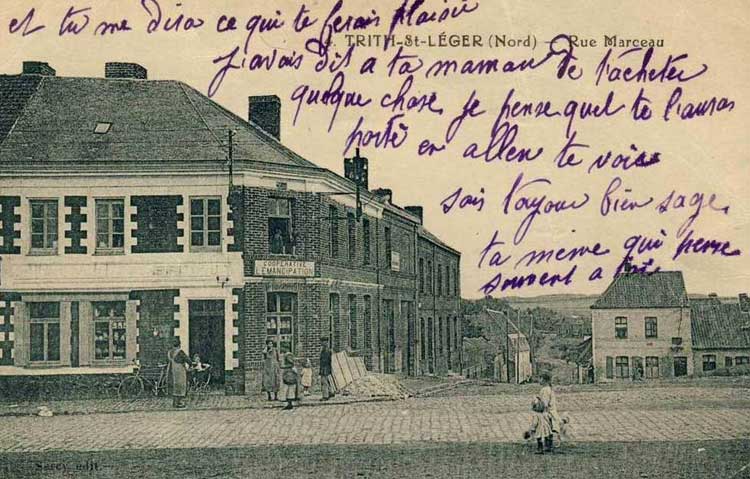 et tu me dira ce qui te ferais plaisir
TRITH-St-LÉGER (Nord) — Rue Marceau
j'avais dit a ta maman de t'acheter
quelque chose je pense quel te l'auras
porté en allen te voir
sois toujour bien sage.
ta meme qui pense
souvent a toi
COOPÉRATIVE
L'EMANCIPATION
Sercy, edit.